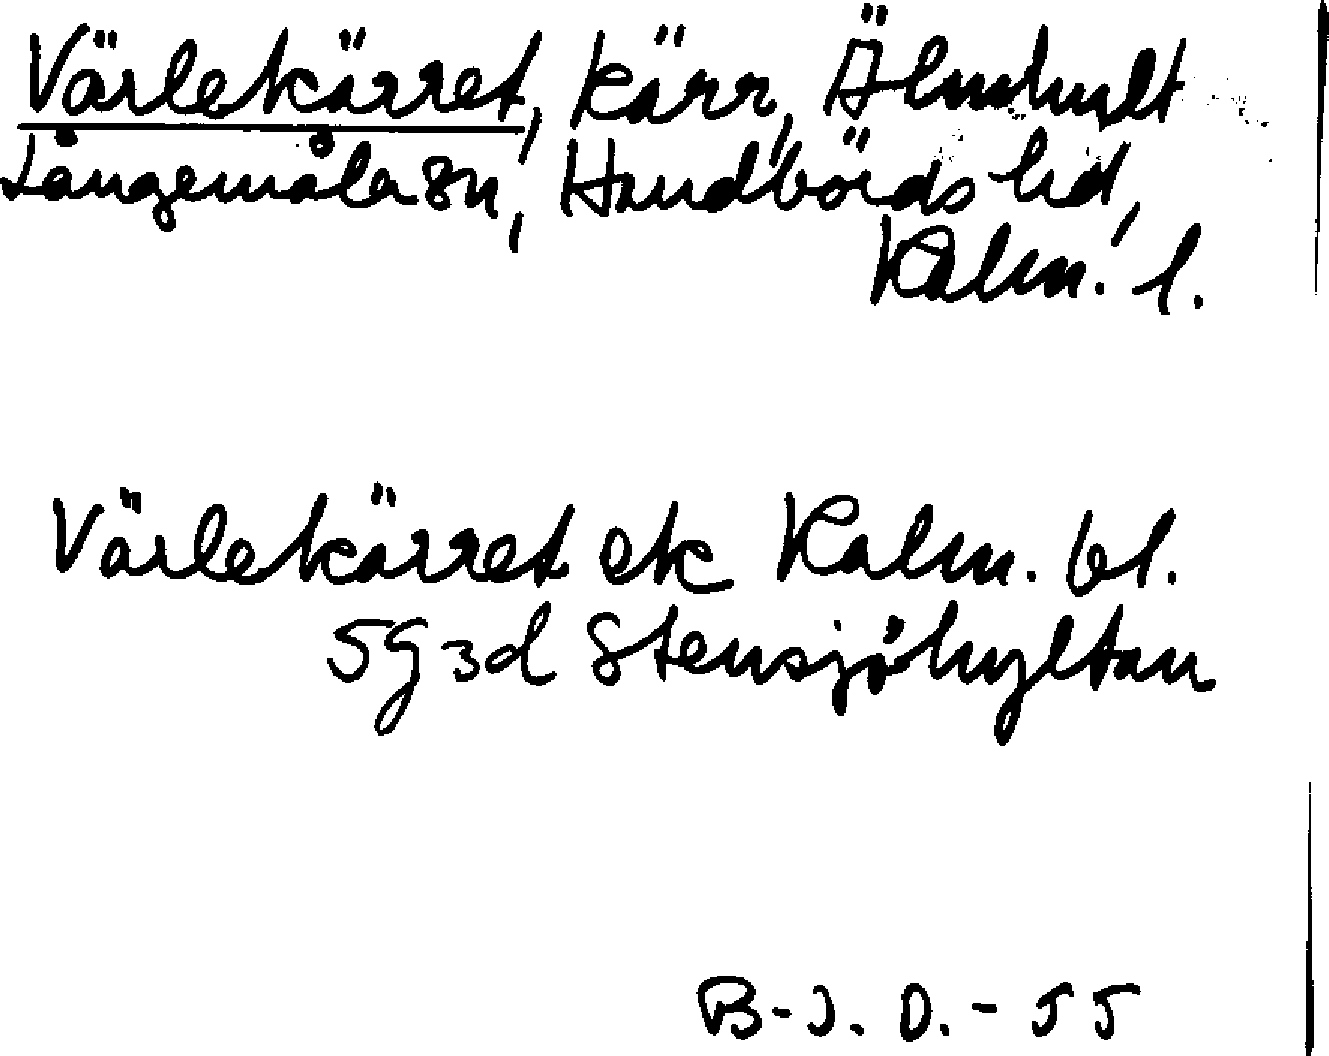 Värlekärret, kärr, Älmhult
Långemåla sn, Handbörds hd,
Kalm. l.
Värlekärret ek Kalm. bl.
5G3d Stensjöhyltan
B-J. D. - 55